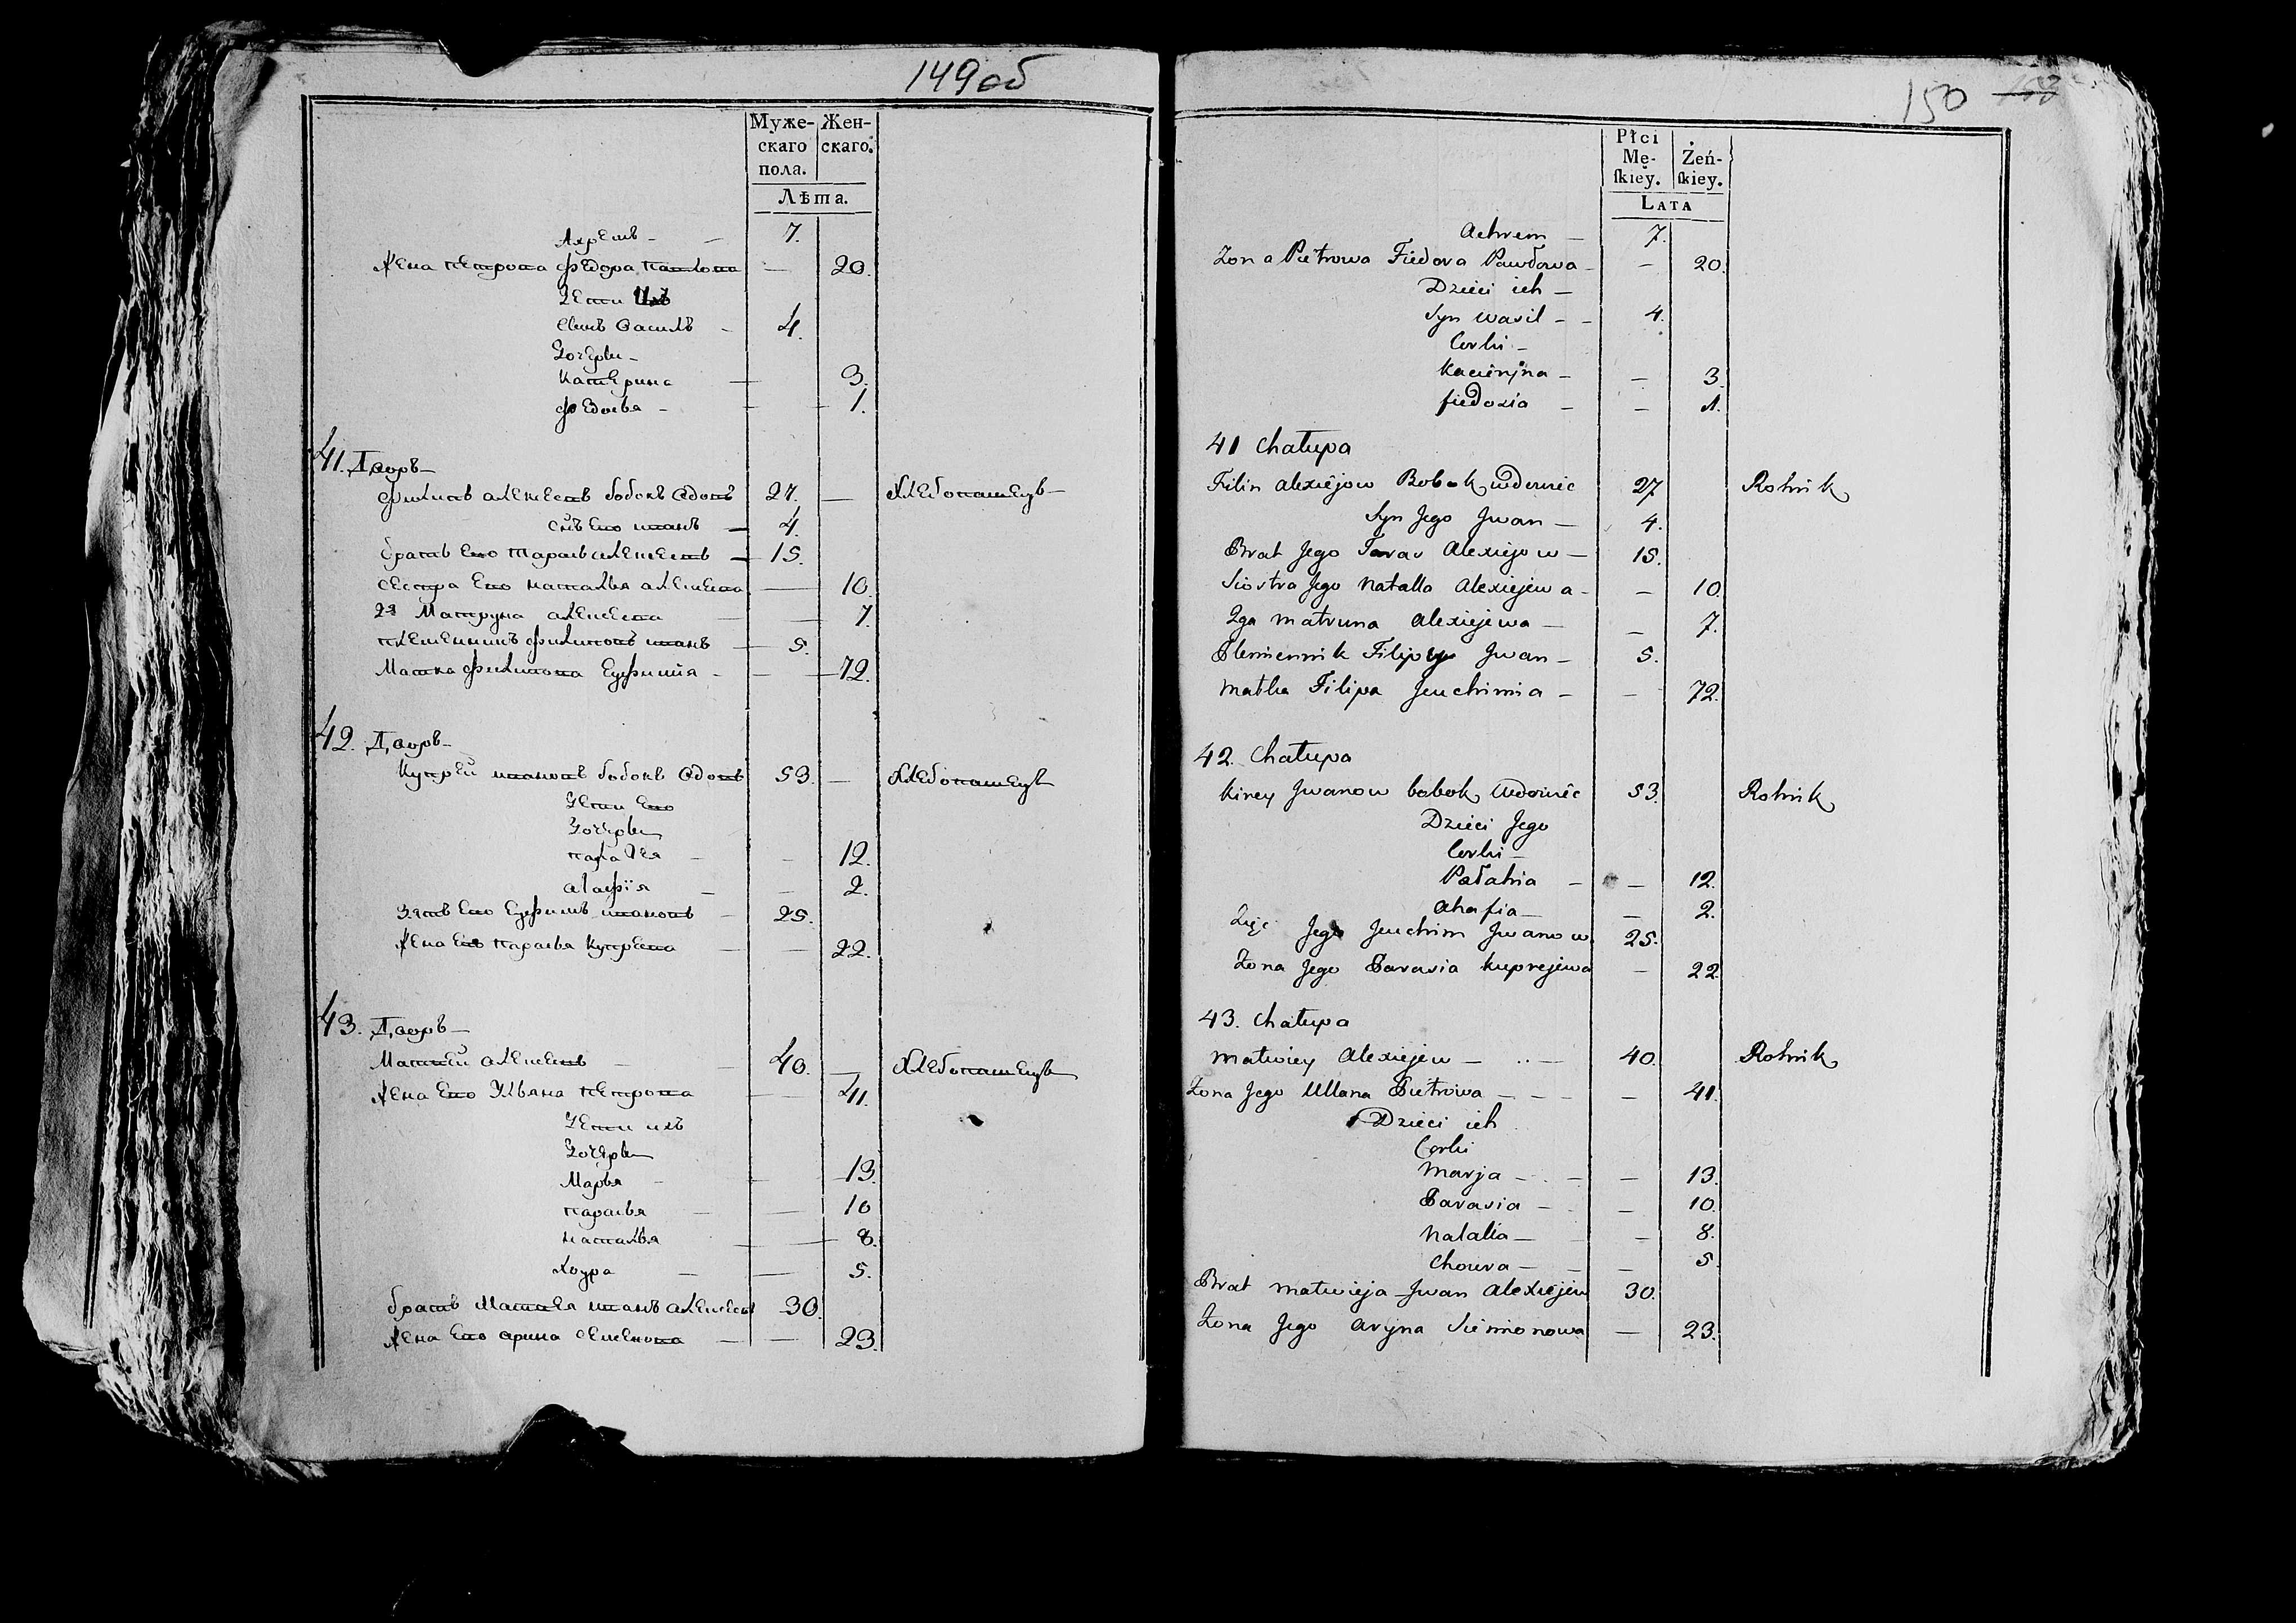 149об
Муже- Жен-
скаго скаго.
пола.
Лѣта.
Ахремъ - - 7.
Жена Петрова Федора Павлова — 20.
Дети Ихъ
Сынъ Василъ - 4.
Дочери -
Катерина — 3.
Федосья - — 1.
41. Дворъ -
Филипъ Алексеевъ Бобокъ вдовъ 27. — Хлебопашецъ -
Сынъ Ево Иванъ — 4.
Братъ Ево Тарасъ Алексеевъ — 15.
Сестра Ево Наталья Алексеева — 10.
2я Матруна Алексеева — 7.
Племенникъ Филиповъ Иванъ — 5.
Матка Филипова Еуфимія - — 72.
42. Дворъ -
Купрей Ивановъ Бобокъ вдовъ 53. — Хлебопашецъ
Дети Ево
Дочери
Палагея - - 12.
Агафія - — 2.
Зять Ево Еуфимъ Ивановъ - 25.
Жена Ево Парасья Купреева — — 22.
43. Дворъ -
Матвей Алексеевъ - - 40. — Хлебопашецъ
Жена Ево Ульяна Петрова — — 41.
Дети ихъ
Дочери
Марья - — 13.
Парасья - — 10
Наталья — — 8.
Хоура - — 5.
Братъ Матвея Иванъ Алексеевъ 30.
Жена Ево Арина Семенова — — 23.
150
Płci
Mę- Żeń-
ſkiey. ſkiey.
LATA
Achrem — 7.
Zona Pietrowa Fiedora Pawłowa - — 20.
Dzieci ich —
Syn Wasil - - 4.
Corki -
Kacieryna - — 3.
fiedosia - - 1.
41 Chałupa
Filip Alexiejow Bobok wdowiec 27 Rolnik
Syn Jego Jwan — 4.
Brat Jego Taras Alexiejow — 15.
Siostra Jego Natalla Alexiejewa - — 10.
2ga Matruna Alexiejewa — — 7.
Plemiennik Filipa Jwan - 5.
Matka Filipa Jeuchimia - - 72.
42. Chałupa
Kirey Jwanow bobok Wdowiec 53. Rolnik
Dzieci Jego
Corki -
Pałahia - — 12.
Ahafia — — 2.
Zięć Jego Jeuchim Jwanow 25.
Zona Jego Parasia Kuprejewa — 22
43. Chałupa
Matwiey Alexiejew — .. — 40. Rolnik
Zona Jego Ullana Pietrowa - - - — 41.
Dzieci ich
Corki
Marja - . - — 13.
Parasia - . — 10.
Natalia — — 8.
Choura - - — 5.
Brat Matwieja Jwan Alexiejew 30.
Zona Jego Aryna Siemionowa — 23.